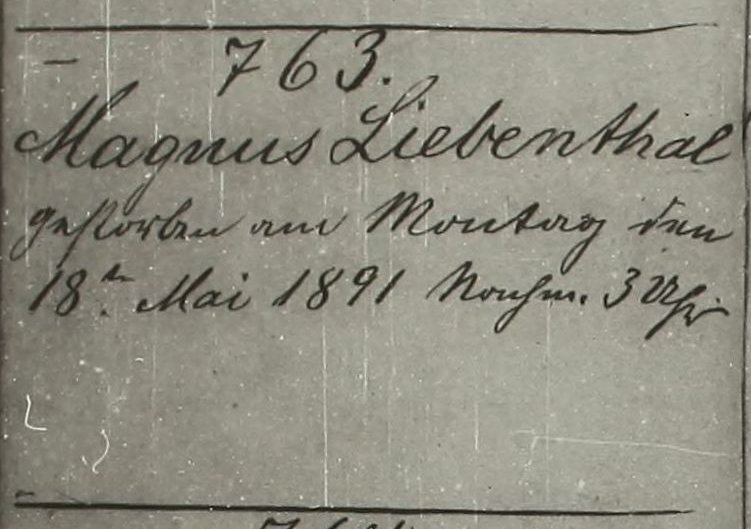 763.
Magnus Liebenthal
gestorben am Montag den
18te. Mai 1891 Nachm. 3 Uhr